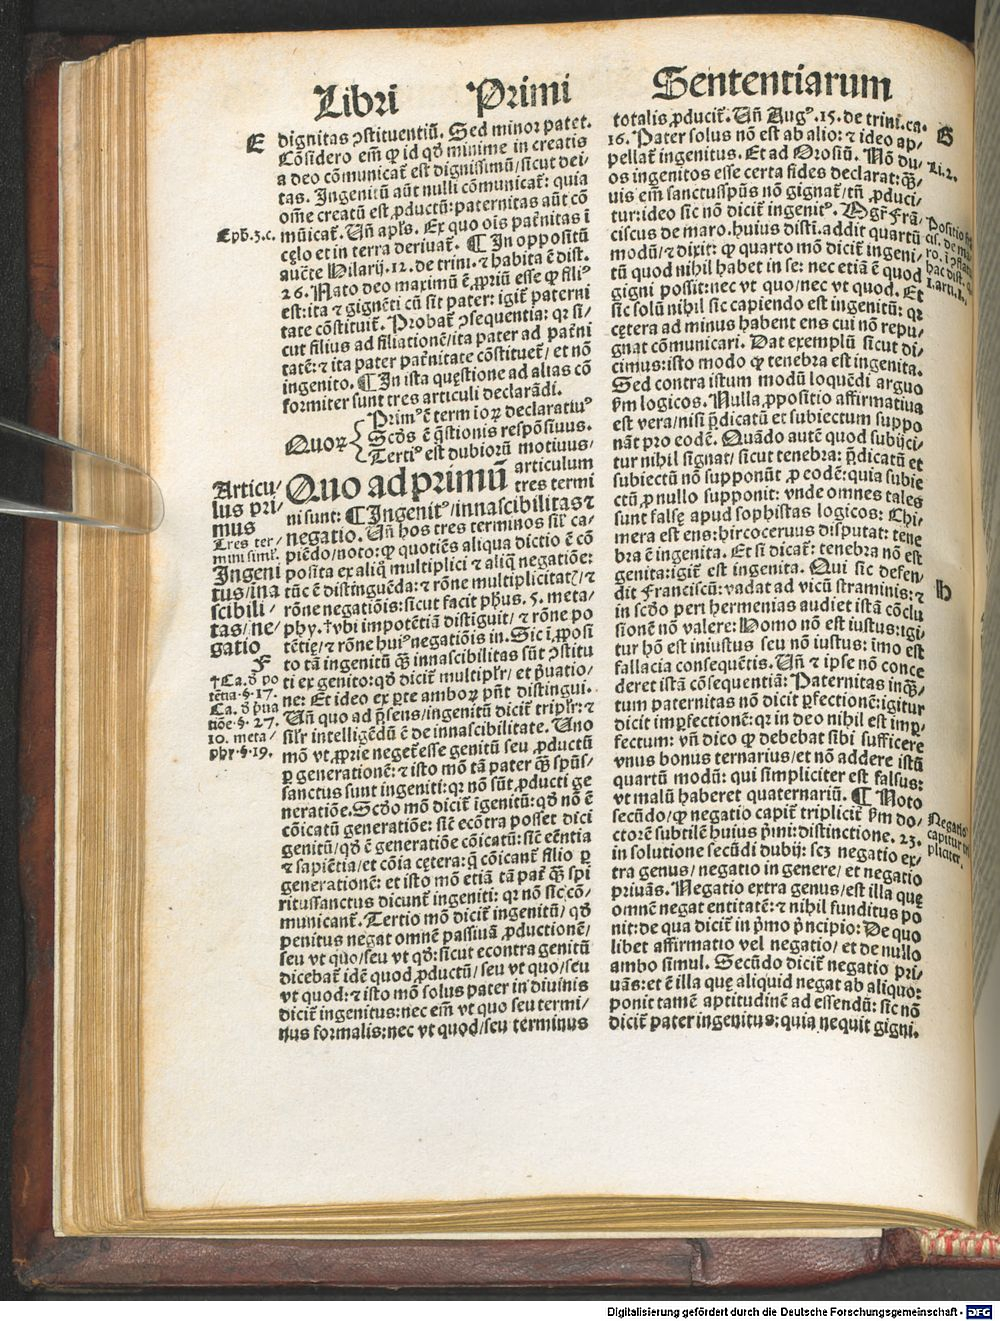 Libri Primi Sententiarum
E
dignitas ↄstituentiũ. Sed minor patet.
Cõsidero em̃ ꝙ id qđ minime in creatis
a deo cõmunicat̃ est dignissimũ/sicut dei⸗
tas. Ingenitũ aũt nulli cõmunicat̃: quia
om̃e creatũ est ꝓductũ: paternitas aũt cõ
Eph.3.c.
mũicat̃. Uñ apl's. Ex quo oīs pat̃nitas ī
cęlo et in terra deriuat̃. ¶ In oppositũ
auc̃te Hilarij.12. de trini.⁊ habita ẽ dist.
26. Nato deo maximũ ẽ ꝓpriũ esse ꝙ fili⁹
est:ita ⁊ gignẽti cũ sit pater: igit̃ paterni
tate cõstituit̃. Probat̃ ↄsequentia: qꝛ si⸗
cut filius ad filiationẽ/ita pater ad pat̃ni
tatẽ: ⁊ ita pater pat̃nitate cõstituet̃/ et nõ
ingenito. ¶ In ista quęstione ad alias cõ
formiter sunt tres articuli declarãdi.
Quoꝝ
Prim⁹ ẽ termĩoꝝ declaratiu⁹
Scđs ẽ q̃stionis respõsiuus.
Terti⁹ est dubiorũ motiuus/
Articu⸗
lus pri⸗
mus
Tres ter⸗
mini simł'.
Ingeni
tus/ina
scibili⸗
tas/ne⸗
gatio
F
†Ca.đ po
tẽtia.§.17.
Ca. đ p̃ua
tiõe.§. 27.
10. meta⸗
phy.§.19.
Quo ad primũ articulum
tres termi
ni sunt: ¶ Ingenit⁹/innascibilitas ⁊
negatio. Uñ hos tres terminos sił' ca⸗
piẽdo/noto:ꝙ quotiẽs aliqua dictio ẽ cõ
posita ex aliq̃ multiplici ⁊ aliq̃ negatiõe:
tũc ẽ distinguẽda: ⁊ rõne multiplicitat̃/ ⁊
rõne negatiõis: sicut facit ph̃us. 5. meta⸗
phy. †vbi impotẽtiã distiguit/ ⁊ rõne po
tẽtię/ ⁊ rõne hui⁹ negatiõis in. Sic ĩ ꝓposi
to tã ingenitũ q̃ƺ innascibilitas sũt ↄstitu
ti ex genito: qđ dicit̃ multipłr/ et p̃uatio⸗
ne: Et ideo ex p̱te amboꝝ pñt distingui.
Uñ quo ad p̃sens/ingenitũ dicit̃ tripłr: ⁊
siłr intelligẽdũ ẽ de innascibilitate. Uno
mõ vt ꝓprie neget̃ esse genitũ seu ꝓductũ
ꝑ generationẽ: ⁊ isto mõ tã pater q̃ƺ spũs⸗
sanctus sunt ingeniti: qꝛ nõ sũt ꝓducti ge
neratiõe. Scđo mõ dicit̃ ĩgenitũ: qđ nõ ẽ
cõicatũ generatiõe: sicẽ ecõtra posset dici
genitũ/qđ ẽ generatiõe cõicatũ: sicẽ eẽntia
⁊ sapiẽtia/et cõia cętera: q̃ cõicant̃ filio ꝑ
generationẽ: et isto mõ etiã tã pat̃ q̃ƺ spi
ritussanctus dicunt̃ ingeniti: qꝛ nõ sic cõ⸗
municant̃. Tertio mõ dicit̃ ingenitũ/ qđ
penitus negat omnẽ passiuã ꝓductionẽ/
seu vt quo/seu vt qđ: sicut econtra genitũ
dicebat̃ idẽ quod ꝓductũ/ seu vt quo/seu
vt quod: ⁊ isto mõ solus pater in diuinis
dicit̃ ingenitus: nec em̃ vt quo seu termi⸗
nus formalis: nec vt quod/seu terminus
totalis ꝓducit̃. Uñ Aug⁹. 15. de trini.ca.
G
16. Pater solus nõ est ab alio: ⁊ ideo ap⸗
pellat̃ ingenitus. Et ad Orosiũ. Nõ du⸗
Li.2.
os ingenitos esse certa fides declarat: q̃ƺ⸗
uis em̃ sanctusspũs nõ gignat̃/tñ ꝓduci⸗
tur: ideo sic nõ dicit̃ ingenit⁹. Mgr̃ Frã⸗
ciscus de maro. huius distĩ. addit quartũ
modũ/ ⁊ dixit: ꝙ quarto mõ dicit̃ ingeni⸗
tũ quod nihil habet in se: nec etiã ẽ quod
gigni possit: nec vt quo/nec vt quod. Et
sic solũ nihil sic capiendo est ingenitũ: qꝛ
cętera ad minus habent ens cui nõ repu⸗
gnat cõmunicari. Dat exemplũ sicut di⸗
cimus: isto modo ꝙ tenebra est ingenita.
Sed contra istum modũ loquẽdi arguo
p̃m logicos. Nulla ꝓpositio affirmatiua
est vera/nisi p̃dicatũ et subiectum suppo
nãt pro eodẽ. Quãdo autẽ quod subijci⸗
tur nihil signat/ sicut tenebra: p̃dicatũ et
subiectũ nõ supponũt ꝓ eodẽ: quia subie
ctũ ꝓ nullo supponit: vnde omnes tales
sunt falsę apud sophistas logicos: Chi⸗
mera est ens: hircoceruus disputat: tene
bra ẽ ingenita. Et si dicat̃: tenebra nõ est
genita: igit̃ est ingenita. Qui sic defen⸗
dit Franciscũ: vadat ad vicũ straminis: ⁊
H
in scđo peri hermenias audiet istã cõclu
sionẽ nõ valere: Homo nõ est iustus: igi⸗
tur hõ est iniustus seu nõ iustus: imo est
fallacia consequẽtis. Uñ ⁊ ipse nõ conce
deret istã cõsequentiã: Paternitas inq̃ƺ⸗
tum paternitas nõ dicit p̱fectionẽ: igitur
dicit imp̱fectionẽ: qꝛ in deo nihil est imp̱⸗
fectum: vñ dico ꝙ debebat sibi sufficere
vnus bonus ternarius/et nõ addere istũ
quartũ modũ: qui simpliciter est falsus:
vt malũ haberet quaternariũ. ¶ Noto
secũdo/ꝙ negatio capit̃ triplicit̃ p̃m do⸗
Negatio
capitur tri
pliciter.
ctorẽ subtilẽ huius p̃mi: distinctione. 23.
in solutione secũdi dubij: scꝫ negatio ex⸗
tra genus/ negatio in genere/ et negatio
priuãs. Negatio extra genus/est illa quę
omnẽ negat entitatẽ: ⁊ nihil funditus po
nit: de qua dicit̃ in p̃mo p̃ncipio: De quo
libet affirmatio vel negatio/ et de nullo
ambo simul. Secũdo dicit̃ negatio pri⸗
uãs: et ẽ illa quę aliquid negat ab aliquo:
ponit tamẽ aptitudinẽ ad essendũ: sic nõ
dicit̃ pater ingenitus: quia nequit gigni.
Digitalisierung gefördert durch die Deutsche Forschungsgemeinschaft - DFG